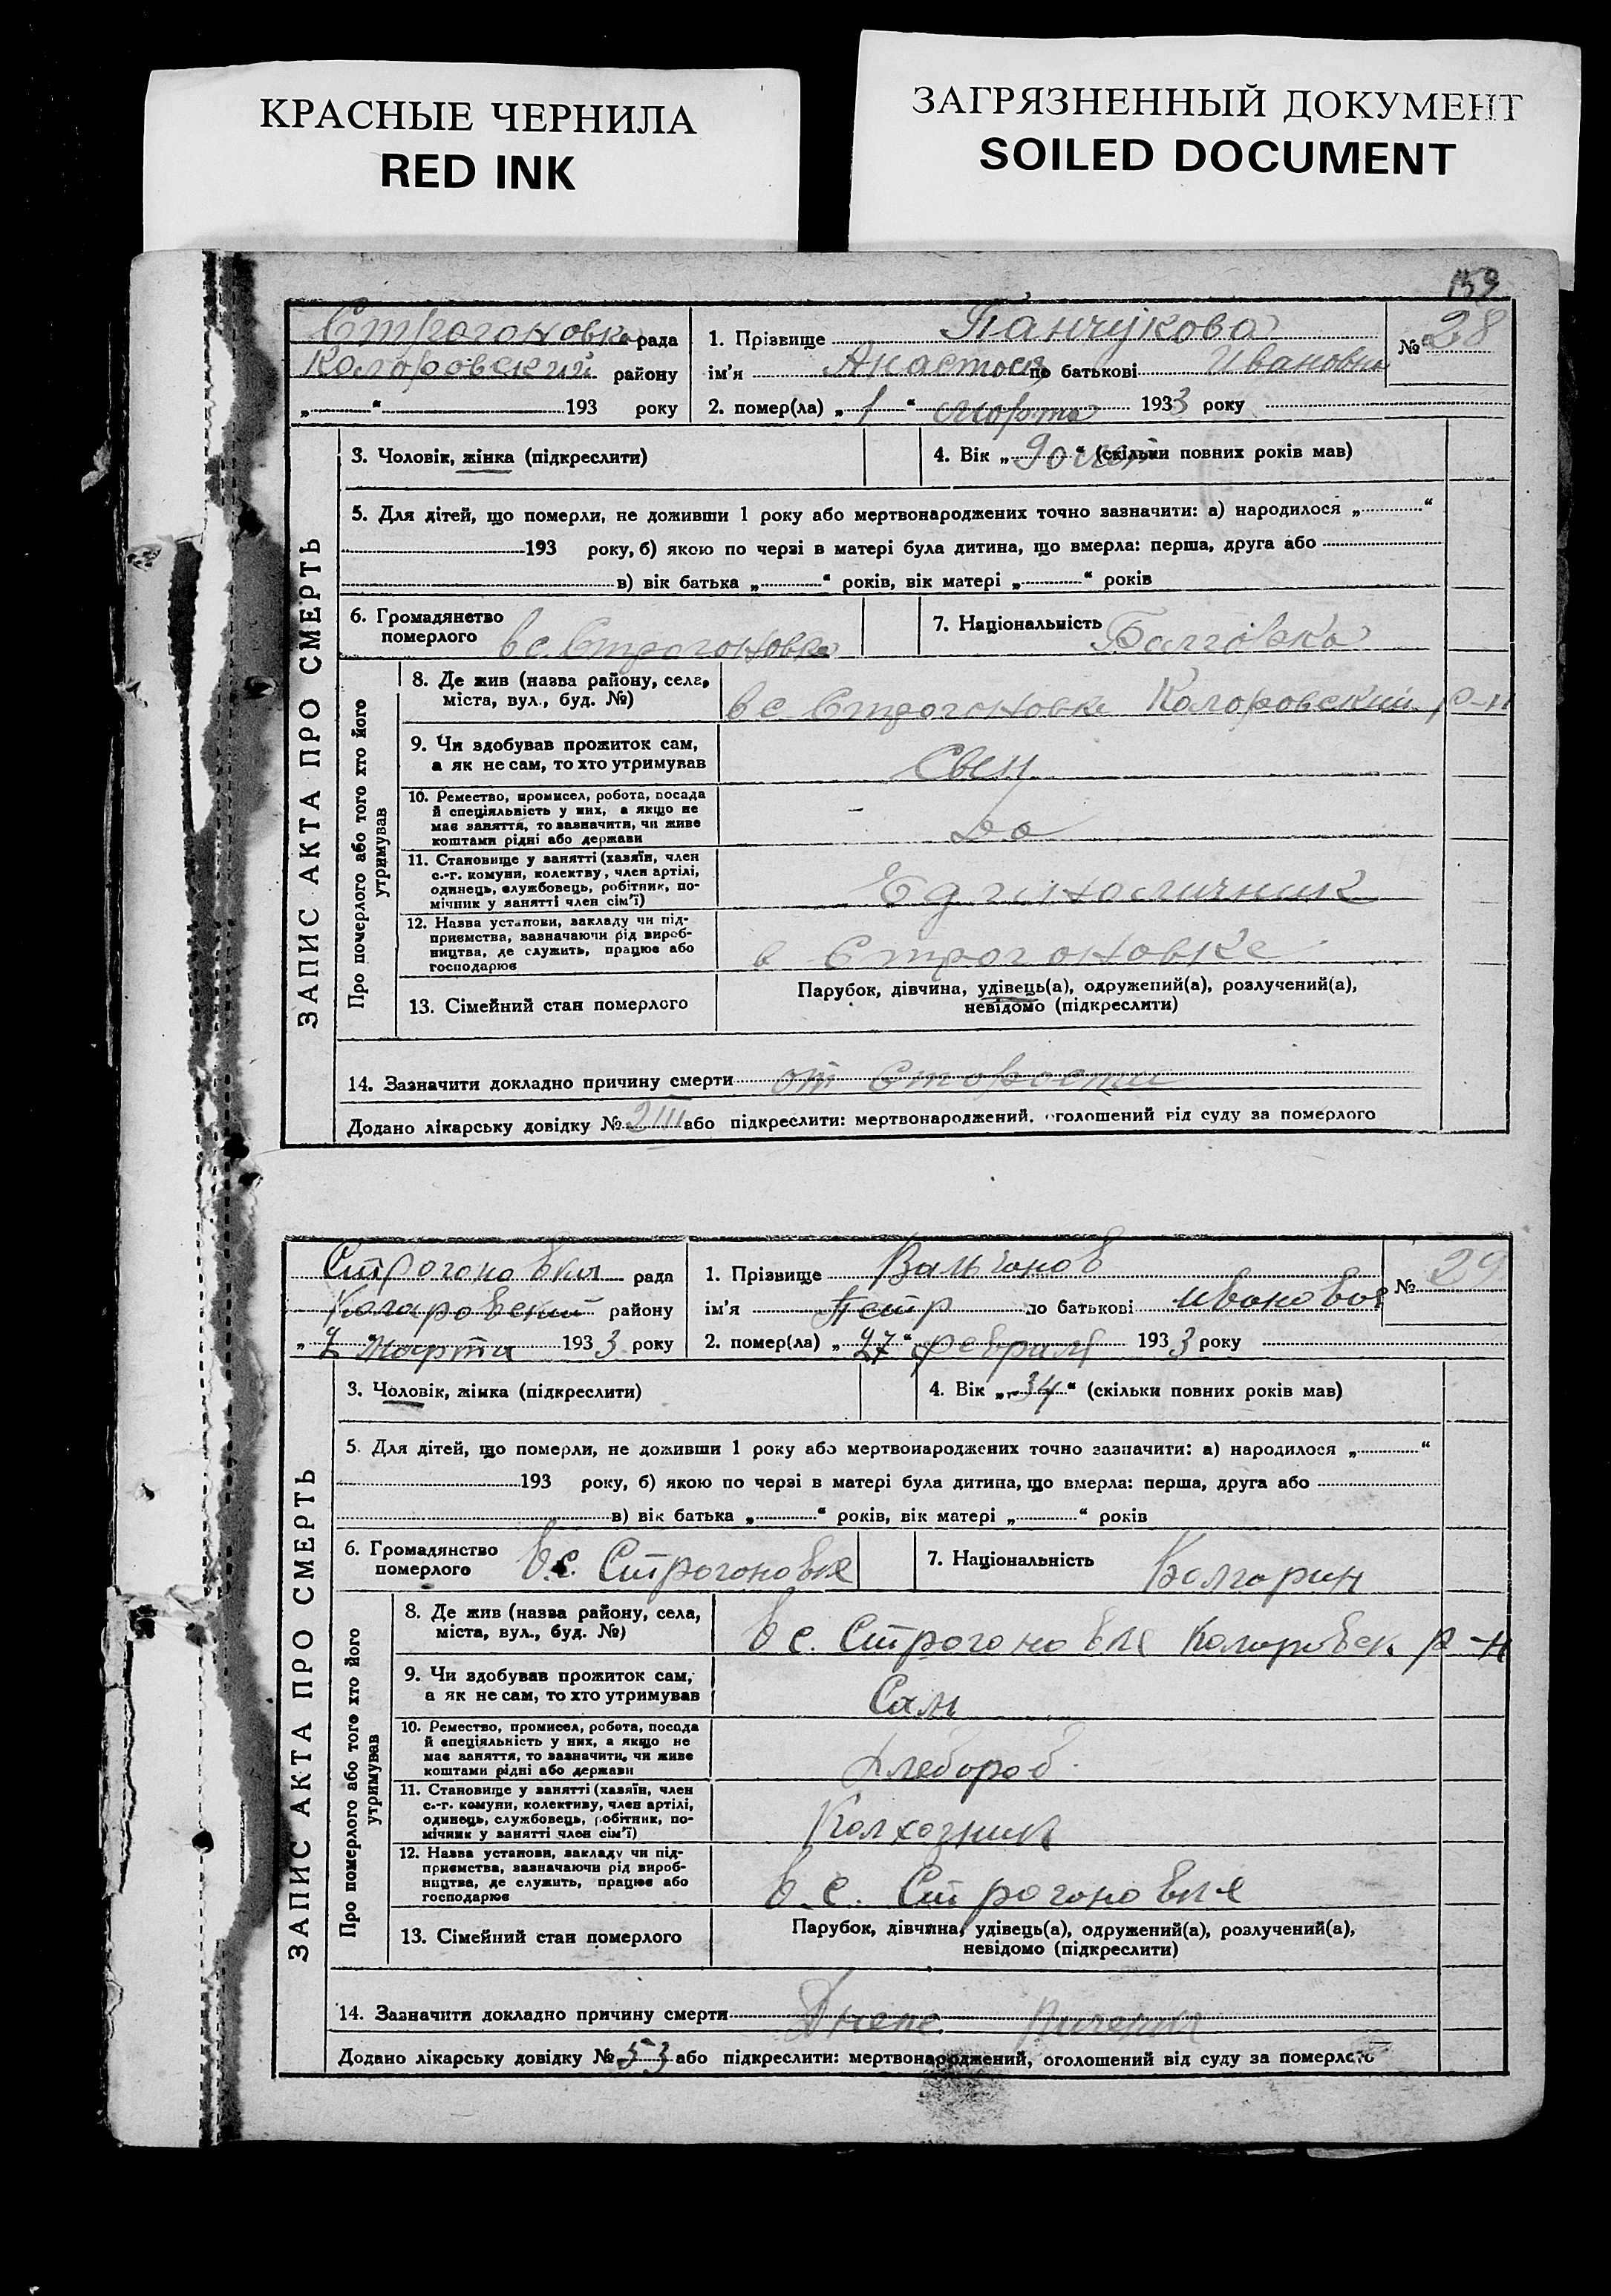 КРАСНЫЕ ЧЕРНИЛА
RED INK
ЗАГРЯЗНЕННЫЙ ДОКУМЕНТ
SOILED DOCUMENT
159
Строгоновка рада
Коларовский району
„ “ 193 року
1. Прізвище Панчукова
ім'я Анастося по батькові Ивановна
2. помер(ла) „ 1 “ Марта 1933 року
№ 28
ЗАПИС АКТА ПРО СМЕРТЬ
3. Чоловік, жінка (підкреслити)
4. Вік „ 90 лет “ (скільки повних років мав)
5. Для дітей, що померли, не доживши 1 року або мертвонароджених точно зазначити: а) народилося „ “
193 року, б) якою по черзі в матері була дитина, що вмерла: перша, друга або
в) вік батька „ “ років, вік матері „ “ років
6. Громадянство
померлого в с. Строгоновке
7. Національність Болгарка
Про померлого або того хто його
утримував
8. Де жив (назва району, села,
міста, вул., буд. №)
в с Строгоновке Коларовский р-н
9. Чи здобував прожиток сам,
а як не сам, то хто утримував
Сын
10. Ремество, промисел, робота, посада
й спеціяльність у них, а якщо не
має заняття, то зазначити, чи живе
коштами рідні або держави
До
11. Становище у занятті (хазяїн, член
с.-г. комуни, колектву, член артілі,
одинець, службовець, робітник, по-
мічник у занятті член сім'ї)
Единоличник
12. Назва установи, закладу чи під-
приємства, зазначаючи рід вироб-
ництва, де служить, працює або
господарює
в Строгоновке
13. Сімейний стан померлого
Парубок, дівчина, удівець(а), одружений(а), розлучений(а),
невідомо (підкреслити)
14. Зазначити докладно причину смерти от Старости
Додано лікарську довідку № 2/III або підкреслити: мертвонароджений, оголошений від суду за померлого
Строгоновка рада
Коларовский району
„ 2 “ Марта 1933 року
1. Прізвище Вальчанов
ім'я Петр по батькові Иванович
2. помер(ла) „ 27 “ февраля 1933 року
№ 29
ЗАПИС АКТА ПРО СМЕРТЬ
3. Чоловік, жінка (підкреслити)
4. Вік „ 34 “ (скільки повних років мав)
5. Для дітей, що померли, не доживши 1 року або мертвонароджених точно зазначити: а) народилося „ “
193 року, б) якою по черзі в матері була дитина, що вмерла: перша, друга або
в) вік батька „ “ років, вік матері „ “ років
6. Громадянство
померлого в с. Строгоновке
7. Національність Болгарин
Про померлого або того хто його
утримував
8. Де жив (назва району, села,
міста, вул., буд. №)
в с. Строгоновке Коларовск. р-н
9. Чи здобував прожиток сам,
а як не сам, то хто утримував
Сам
10. Ремество, промисел, робота, посада
й спеціяльність у них, а якщо не
має заняття, то зазначити, чи живе
коштами рідні або держави
Хлебороб
11. Становище у занятті (хазяїн, член
с.-г. комуни, колективу, член артілі,
одинець, службовець, робітник, по-
мічник у занятті член сім'ї)
Колхозник
12. Назва установи, закладу чи під-
приємства, зазначаючи рід вироб-
ництва, де служить, працює або
господарює
в с. Строгоновке
13. Сімейний стан померлого
Парубок, дівчина, удівець(а), одружений(а), розлучений(а),
невідомо (підкреслити)
14. Зазначити докладно причину смерти
Додано лікарську довідку № 53 або підкреслити: мертвонароджений, оголошений від суду за померлого